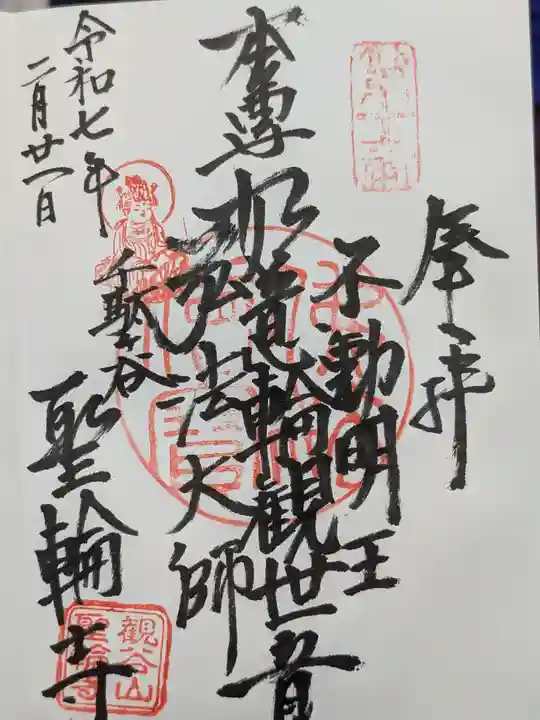 奉拝
不動明王
本尊如意輪觀世音
弘法大師
千駄ヶ谷
聖輪寺
令和七年
二月廿一日
觀谷山
聖輪寺